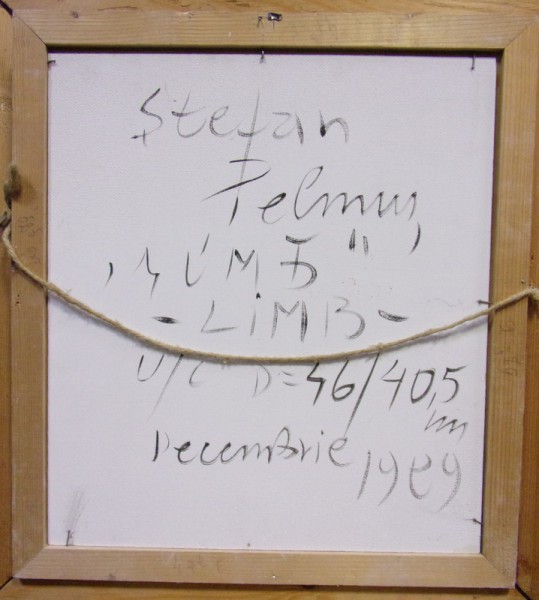 Ștefan
Pelmuș
- LIMB -
U/C D=46/40,5
Decembrie 1989